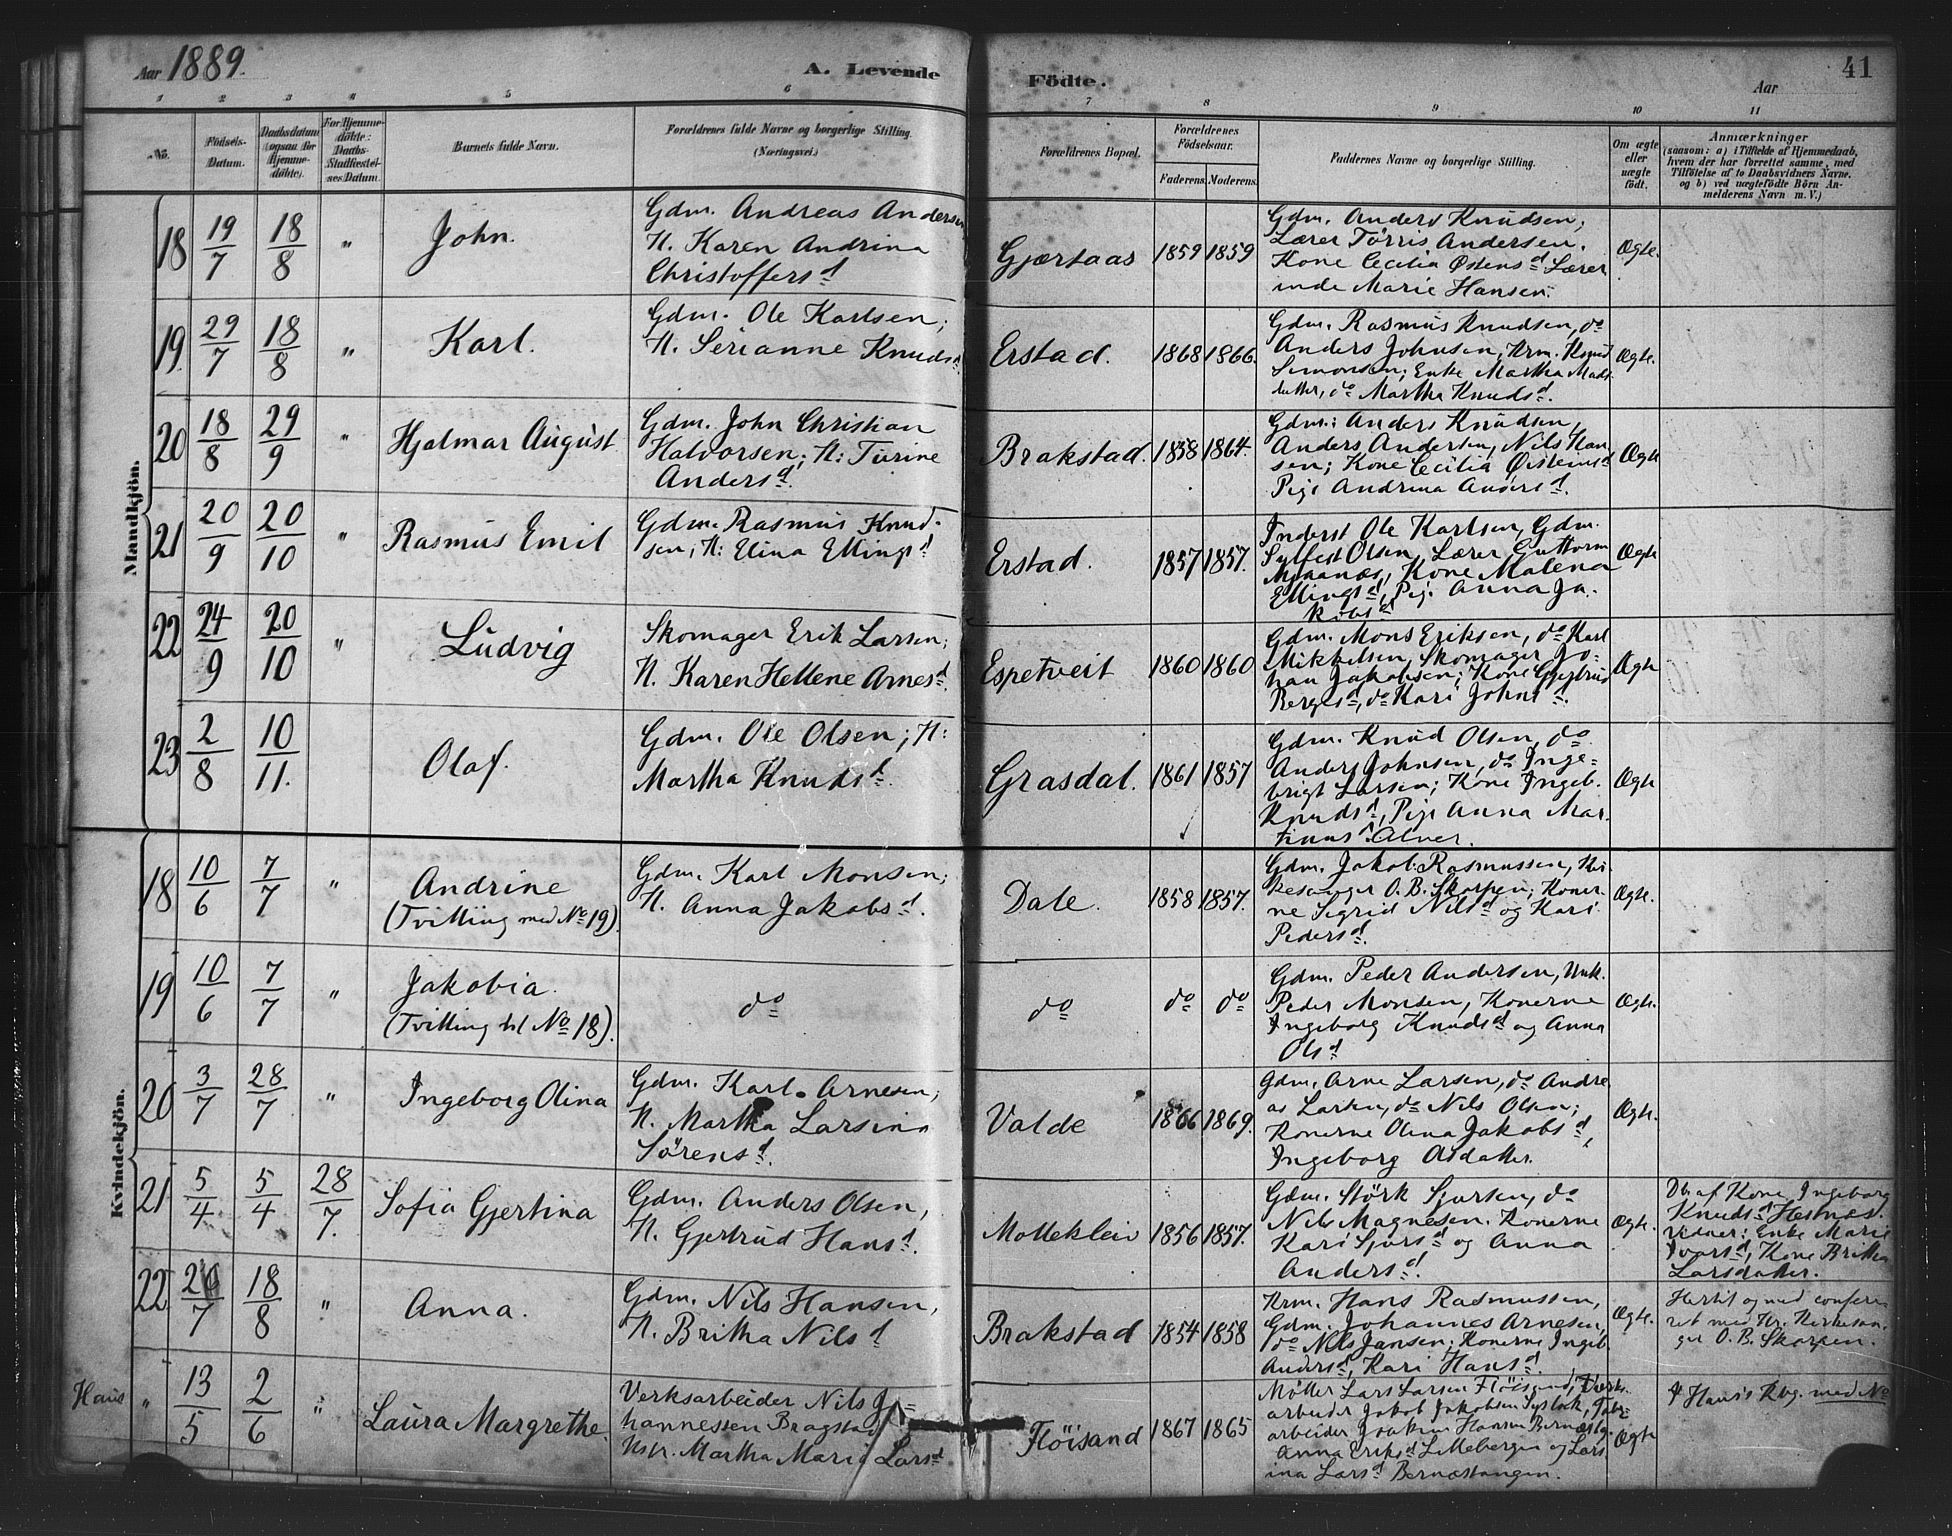 Aar 1889.
A. Levende Födte.
41
Aar
1 2 3 4 5 6 7 8 9 10 11
No.
Födsels-Datum.
Daabsdatum (ogsaa for Hjemmedöbte).
For Hjemmedöbte: Daabs-Stadfæstelses Datum.
Barnets fulde Navn.
Forældrenes fulde Navne og borgerlige Stilling. (Næringsvei.)
Forældrenes Bopæl.
Forældrenes Födselsaar.
Faderens. Moderens.
Faddernes Navne og borgerlige Stilling.
Om ægte eller uægte født.
Anmærkninger
(saasom: a) i Tilfælde af Hjemmedaab, hvem der har forrettet samme, med Tilföielse af to Daabsvidners Navne, og b) ved uægtefödte Börn Anmelderens Navn m. V.)
Mandkjön.
18 19/7 18/8 " John.
Gdm. Andreas Andersen
H. Karen Andrina
Christoffersd
Gjærtaas 1859 1859
Gdm. Anders Knudsen;
Lærer Törris Andersen.
Kone Cecilia Østensd Lærer
inde Marie Hansen.
Ægte.
19. 29/7 18/8 " Karl.
Gdm. Ole Karlsen;
H. Serianne Knudsd.
Erstad. 1868 1866.
Gdm. Rasmus Knudsen, do
Anders Johnsen, Krm. Knud
Simonsen; Enke Martha Mads
datter, do Martha Knudsd.
Ægte.
20 18/8 29/9 " Hjalmar August
Gdm. John Christian
Halvorsen; H: Turine
Andersd.
Brakstad. 1858 1864.
Gdm: Anders Knudsen,
Anders Andersen, Nils Han
sen; Kone Cecilia Østensd
Pige Andrina Andersd.
Ægte
21 20/9 20/10 " Rasmus Emil
Gdm. Rasmus Knud-
sen; H: Elina Ellingsd
Erstad. 1857 1857.
Inderst Ole Karlsen, Gdm.
Sylfest Olsen, Lærer Guttorm
Kone Malena
Ellingsd, Pige Anna Ja-
kobsd
Ægte
22 24/9 20/10 " Ludvig
Skomager Erik Larsen;
H. Karen Hellene Arnesd.
Espetveit 1860 1860
Gdm. Mons Eriksen, do Karl
Mikkelsen, Skomager Jo-
han Jakobsen; Kone Gjertrud
Bergesd, do Kari Johnsd.
Ægte
23 2/8 10/11. Olaf.
Gdm. Ole Olsen; H:
Martha Knudsd.
Grasdal. 1861 1857
Gdm. Knud Olsen, do
Anders Johnsen, do Inge-
brigt Larsen; Kone Ingeb.
Knudsd, Pige Anna Mar-
tinusd Alver.
Ægte
Kvindekjön.
18 10/6 7/7 " Andrine
(Tvilling med No 19).
Gdm. Karl Monsen;
H. Anna Jakobsd.
Dale. 1858 1857.
Gdm. Jakob Rasmussen, Kir
kesanger O. B. Skarpen; Koner
ne Sigrid Nilsd og Kari
Pedersd.
Ægte.
19 10/6 7/7 " Jakobia.
(Tvilling til No 18).
do
do do do
Gdm. Peder Andersen, Unk.
Peder Monsen, Konerne
Ingeborg Knudsd og Anna
Olsd
Ægte.
20 3/7 28/7 " Ingeborg Olina
Gdm. Karl Arnesen;
H. Martha Larsina
Sörensd.
Valde 1866 1869.
Gdm. Arne Larsen, do Andre
as Larsen, do Nils Olsen;
Konerne Olina Jakobsd,
Ingeborg Asdatter.
Ægte.
21 5/4 5/4 28/7. Sofia Gjertina
Gdm. Anders Olsen,
H. Gjertrud Hansd.
Molleklei 1856 1857.
Gdm. Störk Sjursen, do
Nils Magnesen. Konerne
Kari Sjursd og Anna
Andersd.
Ægte.
Db. af Kone Ingeborg
Knudsd Hestnæs.
Vidner: Enke Marie
Ivarsd, Kone Britha
Larsdatter.
22 26/7 18/8 " Anna.
Gdm. Nils Hansen,
H. Britha Nilsd
Brakstad 1854 1858
Krm. Hans Rasmussen,
Gdm. Johannes Arnesen,
do Nils Jansen; Konerne Ingeb.
Andersd, Kari Hansd.
Ægte.
Hertil og med confere
ret med Hr. Kirkesan-
ger O. B. Skarpen.
Haus " 13/5 2/6 " Laura Margrethe.
Verksarbeider Nils Jo-
hannessen Bragstad
Hstr. Martha Maria Larsd
Flöisand 1867 1865
Møller Lars Larsen Flöisand, Værks
arbeider Jakob Jakobsen
arbeider Joakim Hansen
Anna Eriksd Lillebergen og Lars
ina Larsd Bernæstangen.
Ægte
I Haus's Kbg. med No